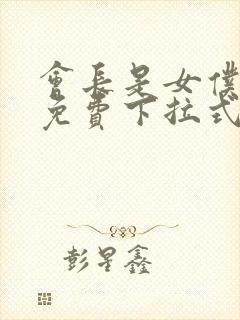 會長是女僕
免費下拉式
彭星鑫